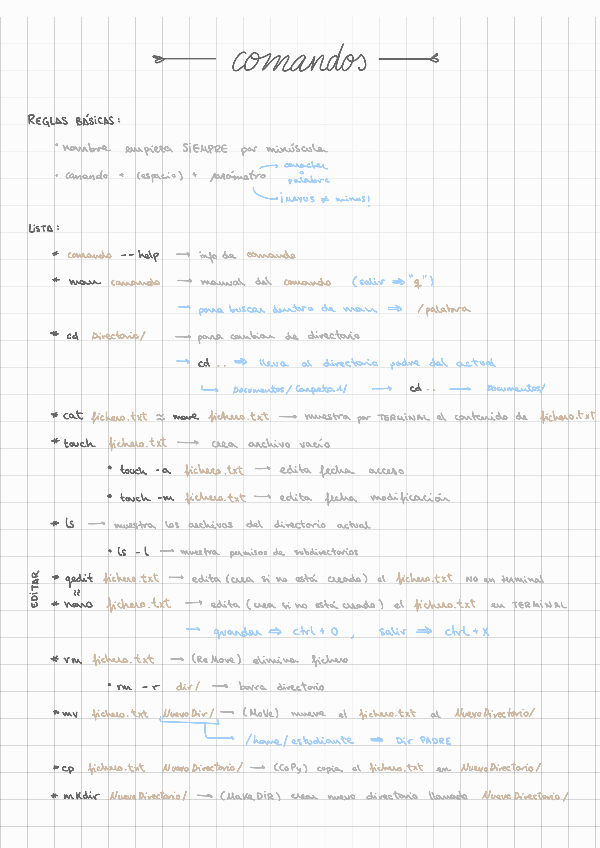 comandos
REGLAS BÁSICAS:
· nombre empieza SIEMPRE por minúscula
· comando + (espacio) + parámetro → caracter
o
palabra
→ ¡mayus ≠ minus!
LISTA:
* comando --help → info de comando
* man comando → manual del comando (salir ⇒ "q")
→ para buscar dentro de man ⇒ /palabra
* cd Directorio/ → para cambiar de directorio
→ cd .. ⇒ lleva al directorio padre del actual
↳ Documentos/Carpeta1/ → cd .. → Documentos/
* cat fichero.txt ≈ more fichero.txt → muestra por TERMINAL el contenido de fichero.txt
* touch fichero.txt → crea archivo vacío
• touch -a fichero.txt → edita fecha acceso
• touch -m fichero.txt → edita fecha modificación
* ls → muestra los archivos del directorio actual
• ls -l → muestra permisos de subdirectorios
EDITAR
* gedit fichero.txt → edita (crea si no está creado) el fichero.txt NO en terminal
=
* nano fichero.txt → edita (crea si no está creado) el fichero.txt en TERMINAL
→ guardar ⇒ ctrl + O , salir ⇒ ctrl + X
* rm fichero.txt → (ReMove) elimina fichero
• rm -r dir/ → borra directorio
* mv fichero.txt NuevoDir/ → (MoVe) mueve el fichero.txt al NuevoDirectorio/
→ /home/estudiante ⇒ Dir PADRE
* cp fichero.txt NuevoDirectorio/ → (CoPy) copia el fichero.txt en NuevoDirectorio/
* mKdir NuevoDirectorio/ → (MaKe DIR) crear nuevo directorio llamado NuevoDirectorio/